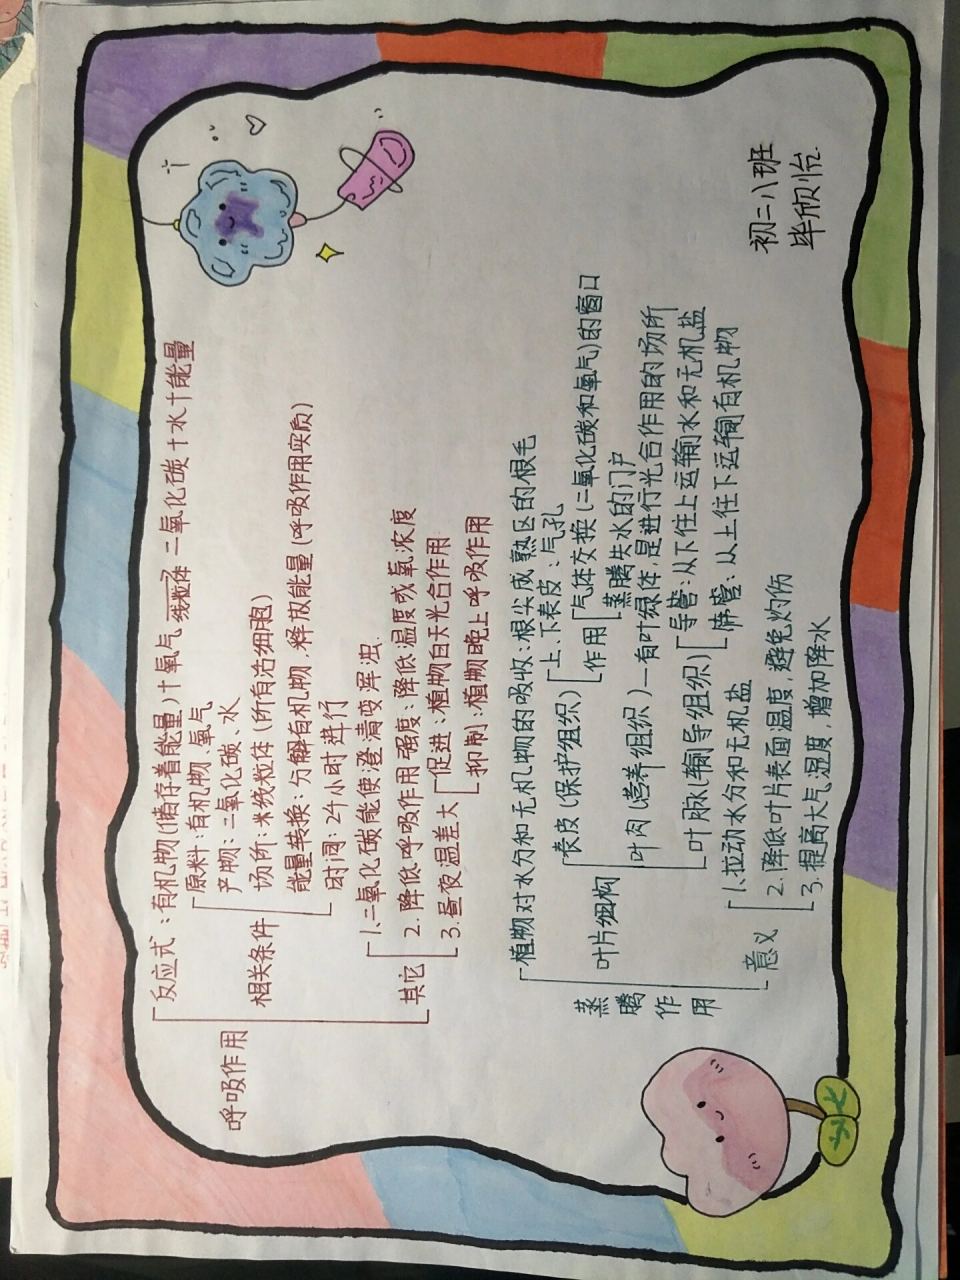 呼吸作用
反应式：有机物(储存着能量)+氧气 线粒体→ 二氧化碳+水+能量
相关条件
原料：有机物、氧气
产物：二氧化碳、水
场所：米线粒体(所有活细胞)
能量转换：分解有机物,释放能量(呼吸作用实质)
时间：24小时进行
其它
1.二氧化碳能使澄清变浑浊.
2.降低呼吸作用强度：降低温度或氧浓度
3.昼夜温差大
促进：植物白天光合作用
抑制：植物晚上呼吸作用
蒸腾作用
植物对水分和无机物的吸收：根尖成熟区的根毛
叶片结构
表皮(保护组织)
上、下表皮：气孔
作用
气体交换(二氧化碳和氧气)的窗口
蒸腾失水的门户
叶肉(营养组织)—有叶绿体,是进行光合作用的场所
叶脉(输导组织)
导管：从下往上运输水和无机盐
筛管：从上往下运输有机物
意义
1.拉动水分和无机盐
2.降低叶片表面温度,避免灼伤
3.提高大气湿度,增加降水
初二八班
毕欣怡.